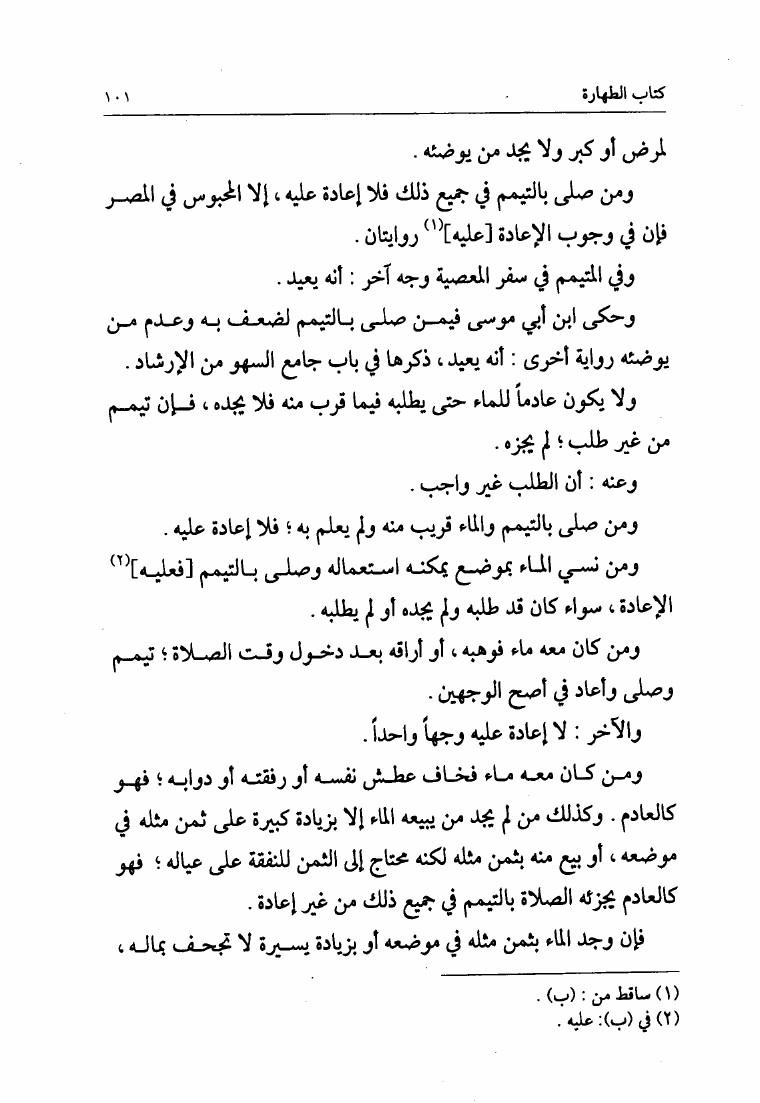 كتاب الطهارة ١٠١
لمرض أو كبر ولا يجد من يوضئه .
ومن صلى بالتيمم في جميع ذلك فلا إعادة عليه ، إلا المحبوس في المصر
فإن في وجوب الإعادة [عليه](١) روايتان .
وفي المتيمم في سفر المعصية وجه آخر : أنه يعيد .
وحكى ابن أبي موسى فيمن صلى بالتيمم لضعف به وعدم من
يوضئه رواية أخرى : أنه يعيد ، ذكرها في باب جامع السهو من الإرشاد .
ولا يكون عادماً للماء حتى يطلبه فيما قرب منه فلا يجده ، فإن تيمم
من غير طلب ؛ لم يجزه .
وعنه : أن الطلب غير واجب .
ومن صلى بالتيمم والماء قريب منه ولم يعلم به ؛ فلا إعادة عليه .
ومن نسي الماء بموضع يمكنه استعماله وصلى بالتيمم [فعليه](٢)
الإعادة ، سواء كان قد طلبه ولم يجده أو لم يطلبه .
ومن كان معه ماء فوهبه ، أو أراقه بعد دخول وقت الصلاة ؛ تيمم
وصلى وأعاد في أصح الوجهين .
والآخر : لا إعادة عليه وجهاً واحداً .
ومن كان معه ماء فخاف عطش نفسه أو رفقته أو دوابه ؛ فهو
كالعادم . وكذلك من لم يجد من يبيعه الماء إلا بزيادة كبيرة على ثمن مثله في
موضعه ، أو بيع منه بثمن مثله لكنه محتاج إلى الثمن للنفقة على عياله ؛ فهو
كالعادم يجزئه الصلاة بالتيمم في جميع ذلك من غير إعادة .
فإن وجد الماء بثمن مثله في موضعه أو بزيادة يسيرة لا تجحف بماله ،
(١) ساقط من : (ب) .
(٢) في (ب): عليه .